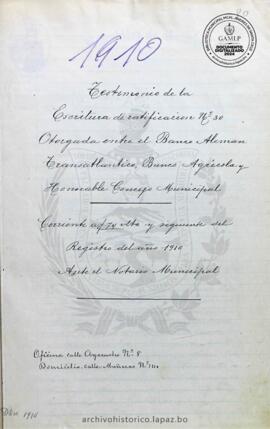 1910
GAMLP
DOCUMENTO
DIGITALIZADO
2024
Testimonio de la
Escritura de ratificacion Nº 30
Otorgada entre el Banco Aleman
Transatlantico, Banco Agrícola y
Honorable Concejo Municipal
Corriente a f 70 vta y siguiente del
Registro del año 1910
Ante el Notario Municipal
Oficina calle Ayacucho Nº 8
Domicilio calle
1910
archivohistorico.lapaz.bo